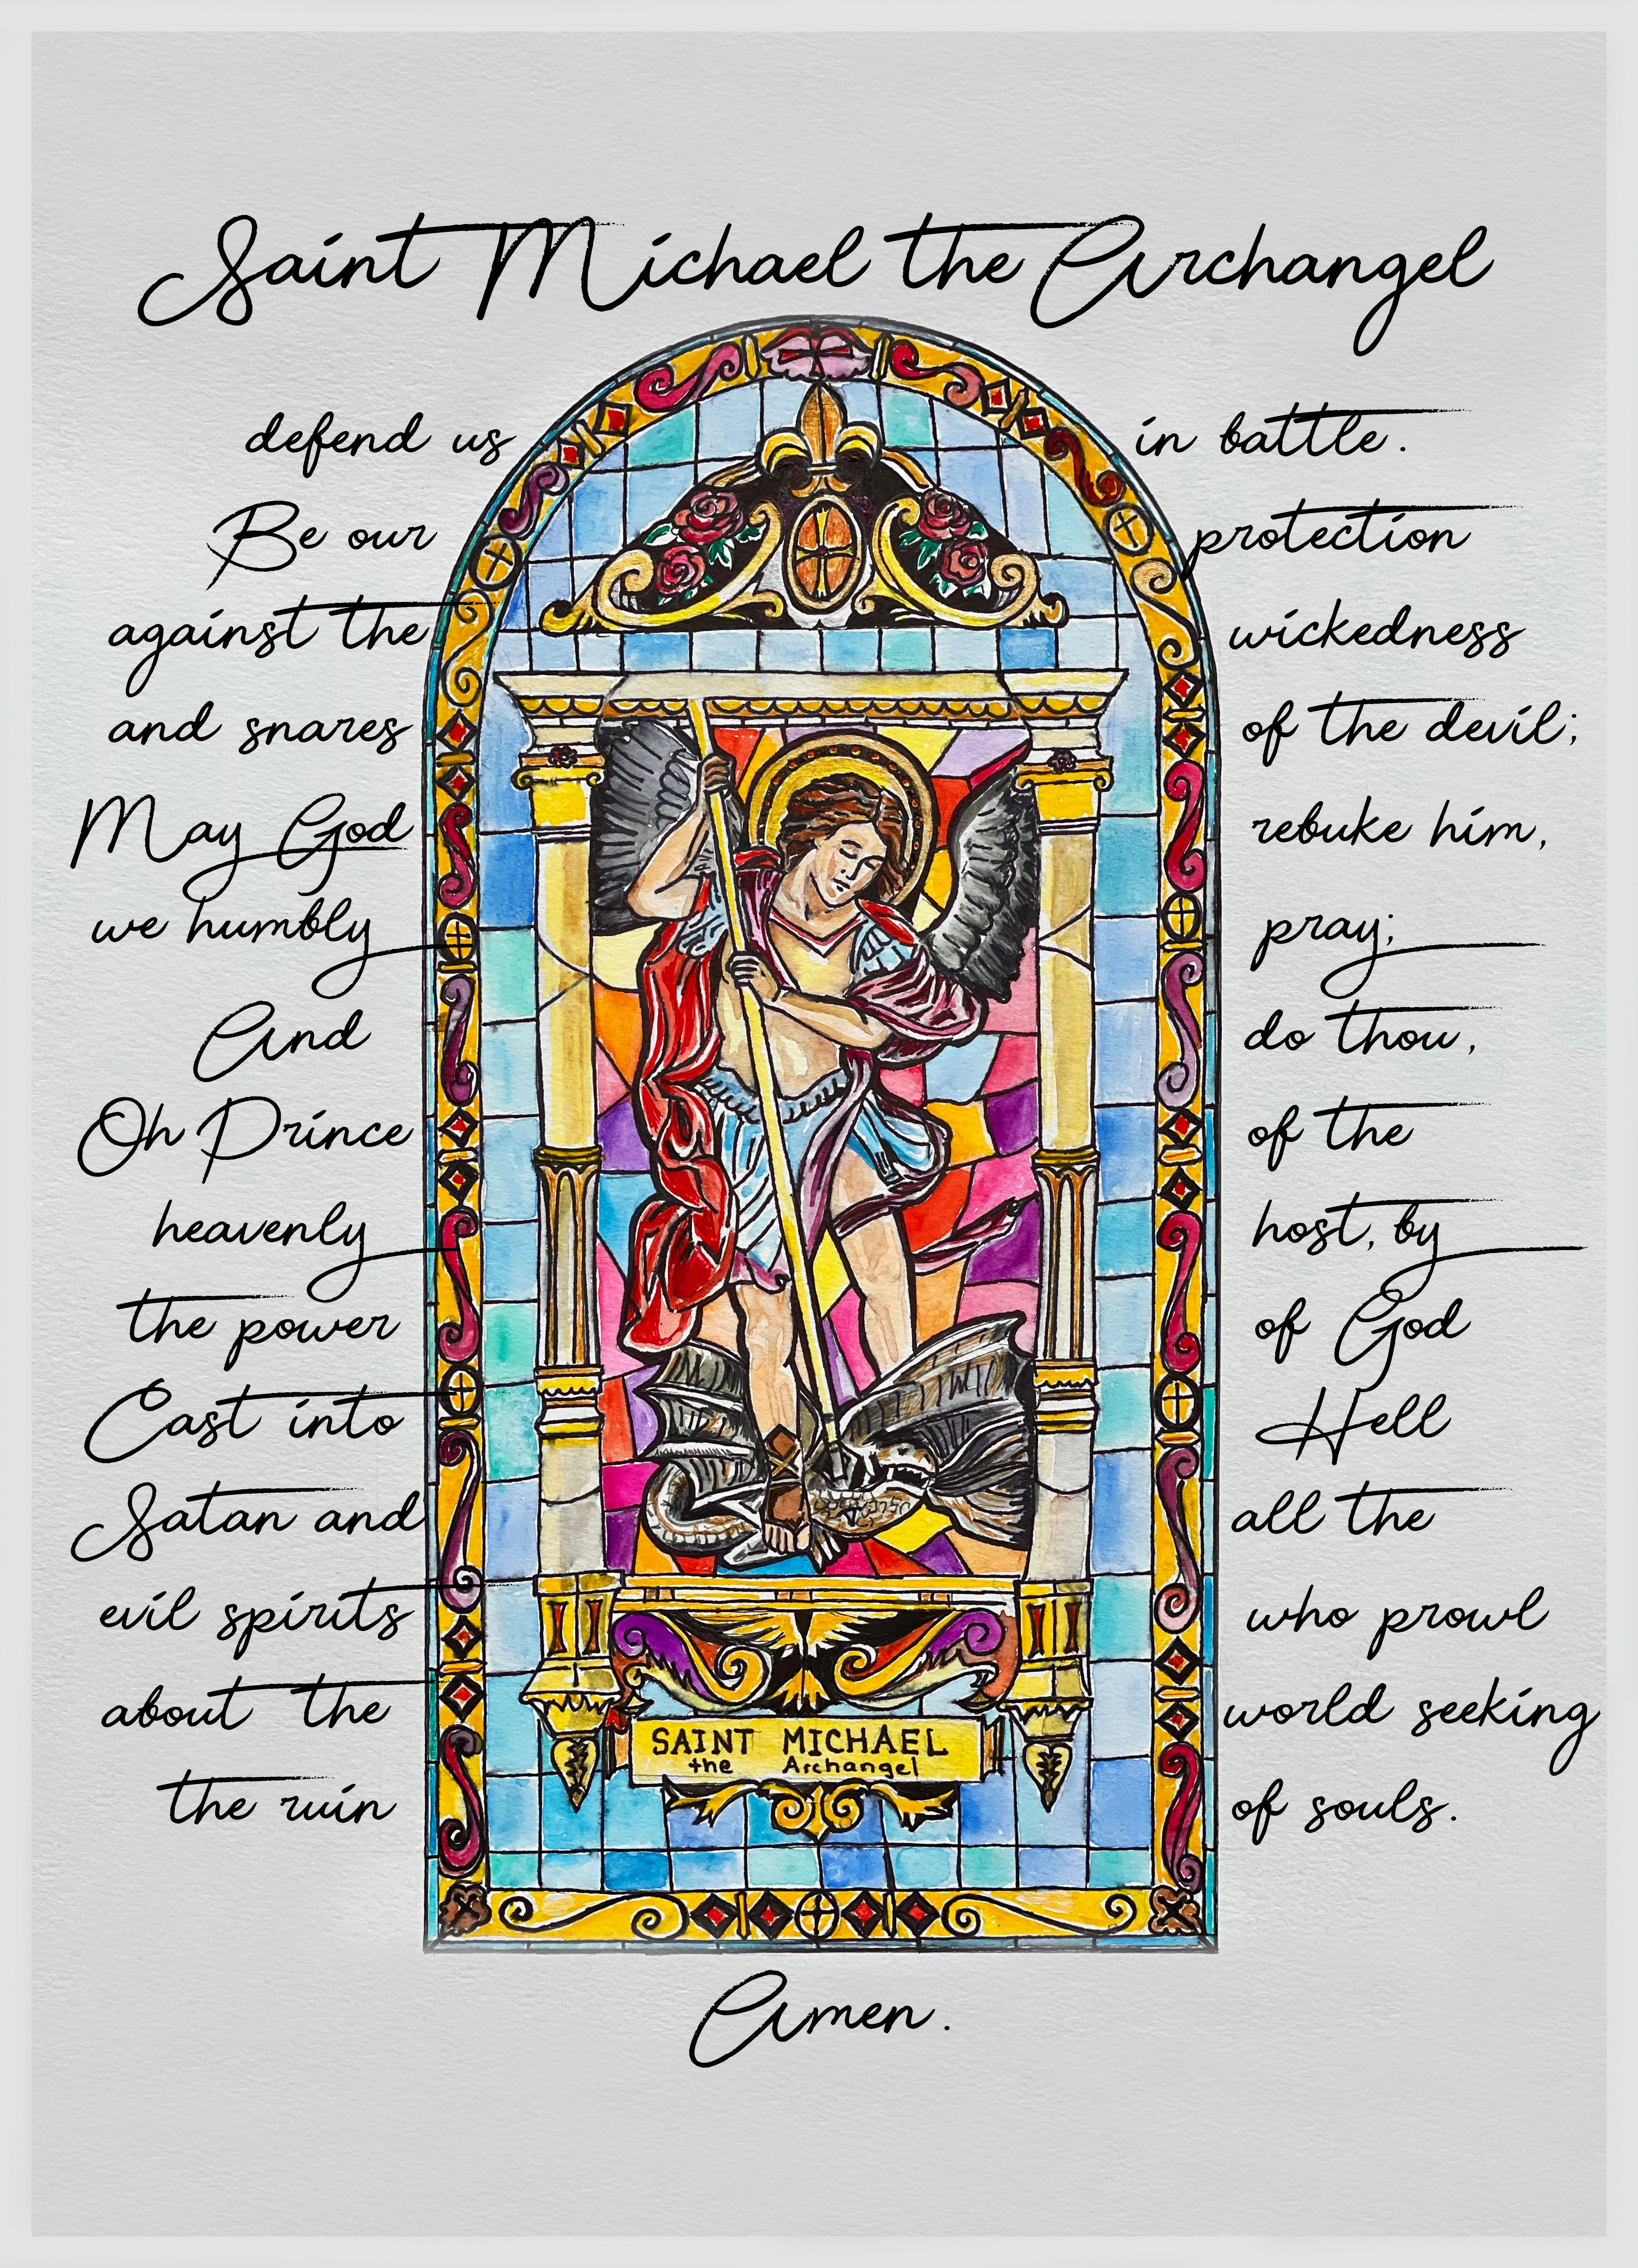 Saint Michael the Archangel
defend us in battle.
Be our protection
against the wickedness
and snares of the devil;
May God rebuke him,
we humbly pray;
And do thou,
Oh Prince of the
heavenly host, by
the power of God
Cast into Hell
Satan and all the
evil spirits who prowl
about the world seeking
the ruin of souls.
SAINT MICHAEL
the Archangel
Amen.